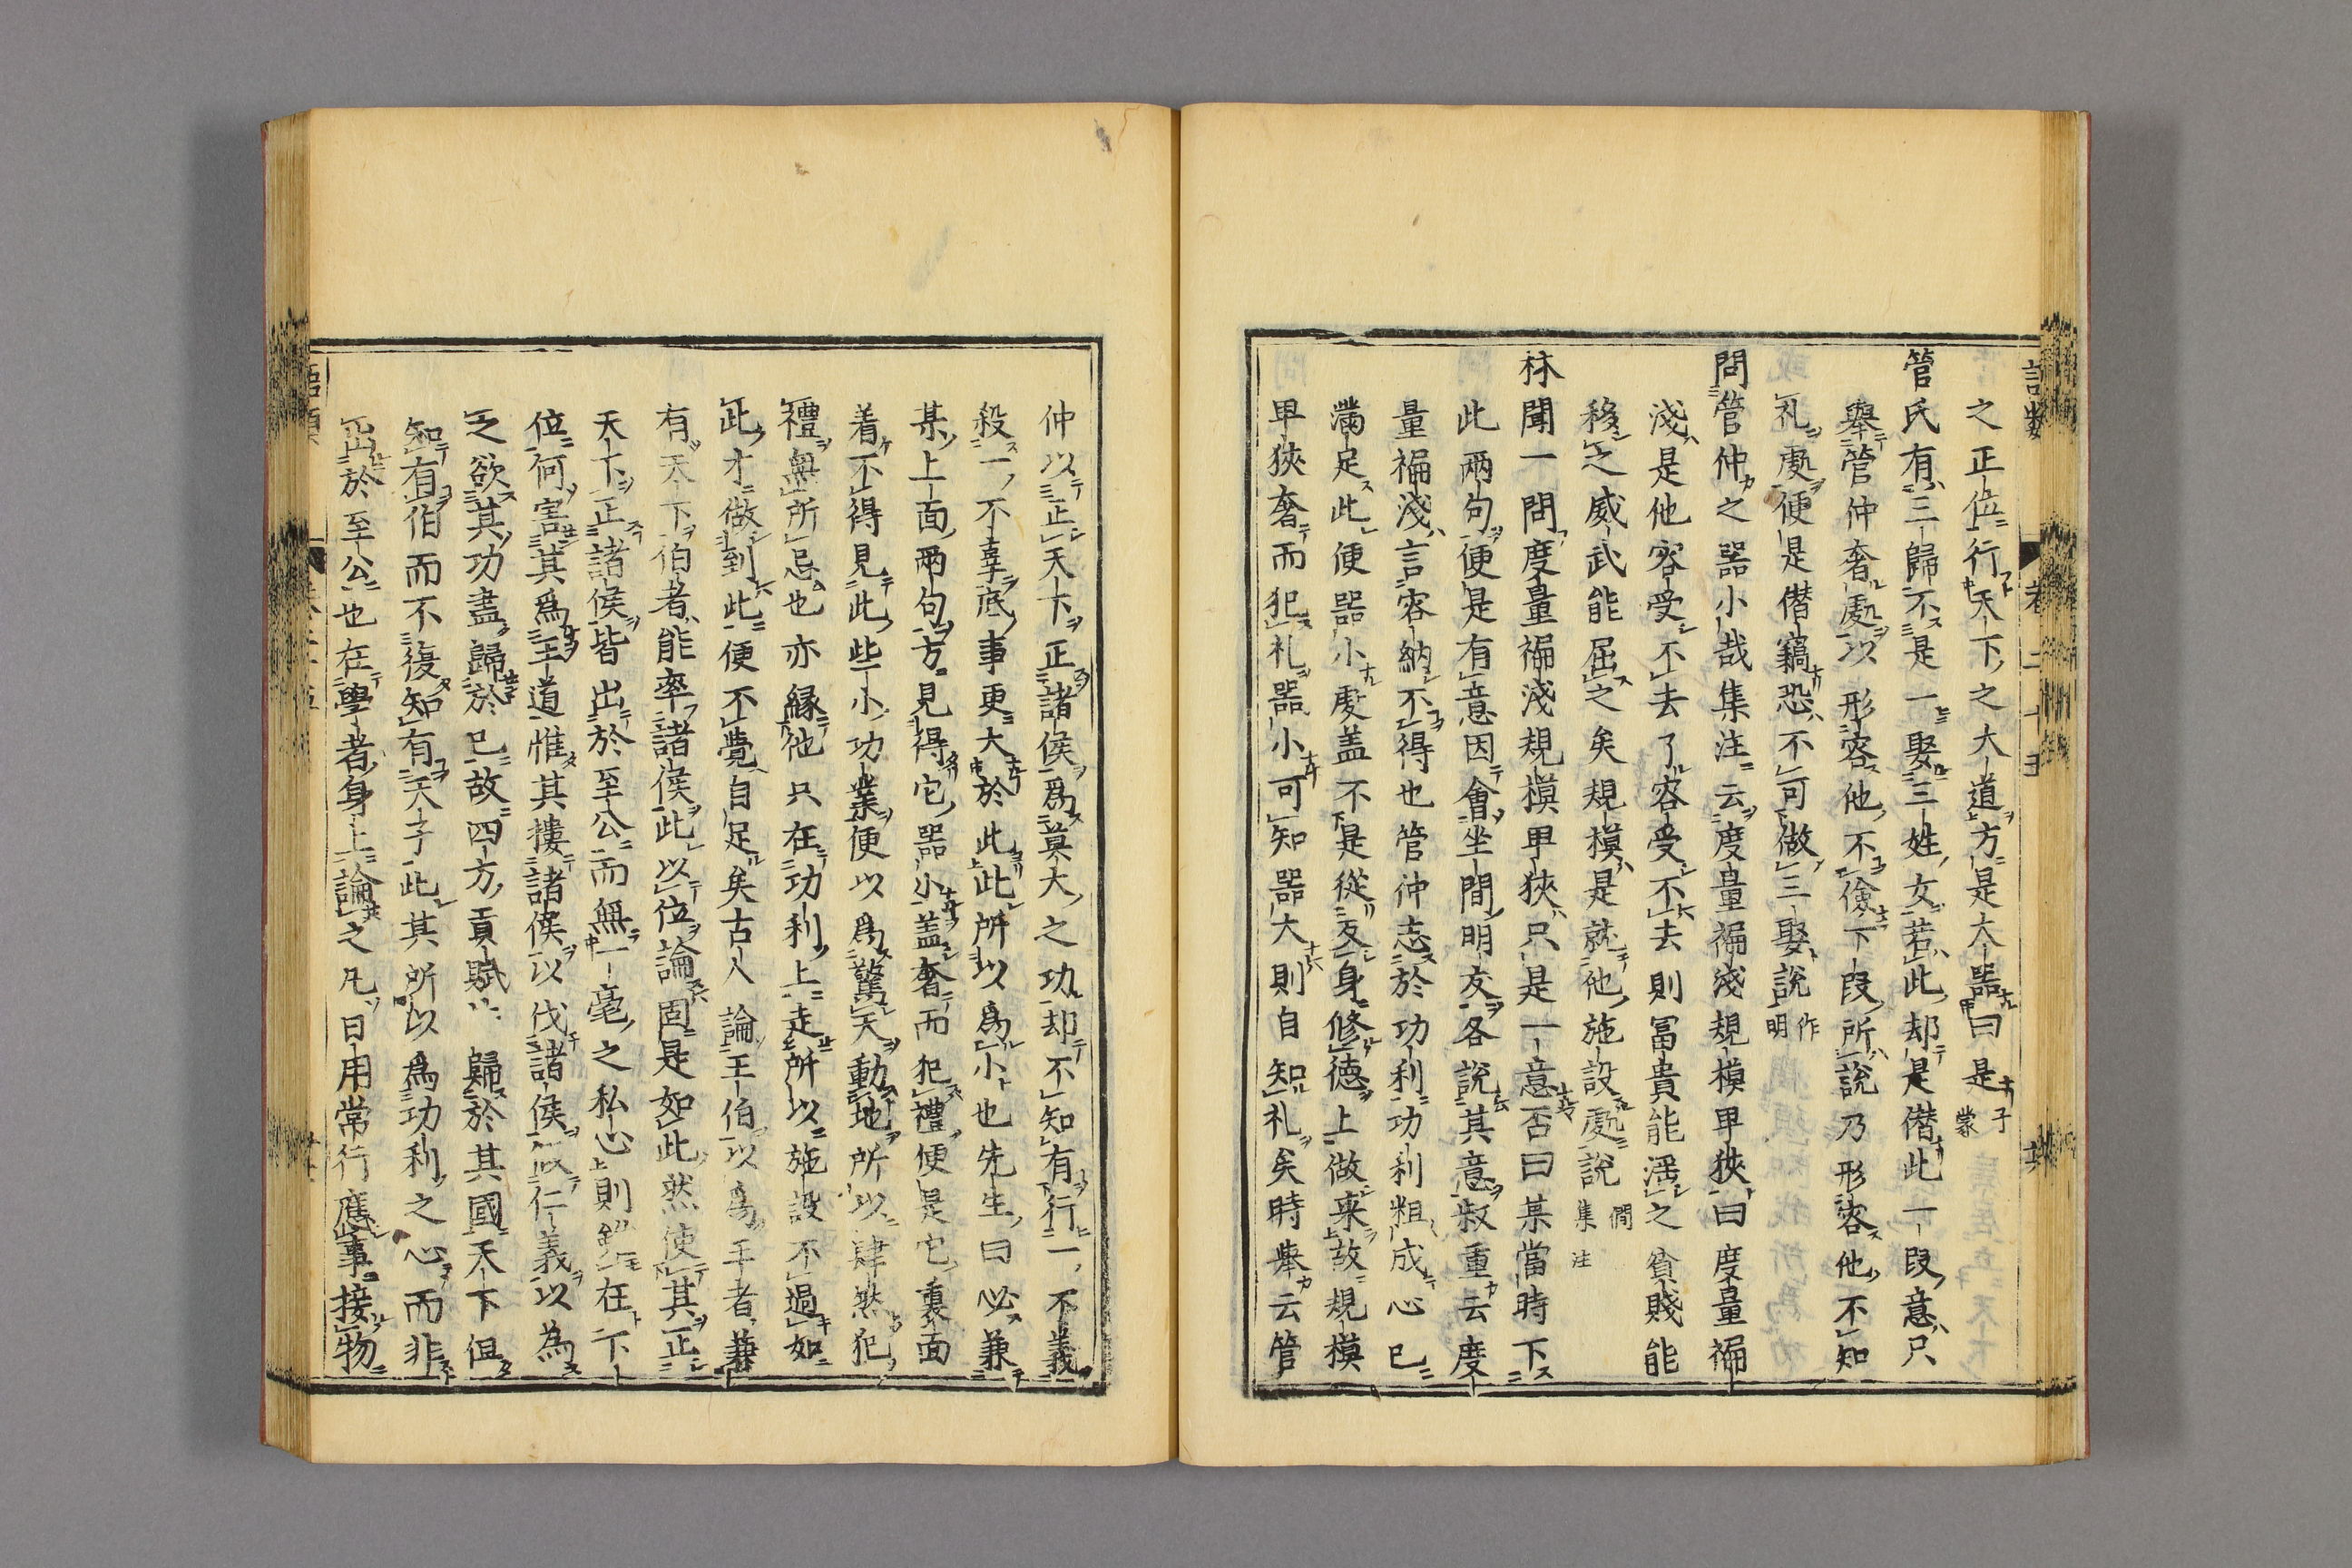 之正位行天下之大道方是大器曰是 子蒙
管氏有三歸不是一娶三姓女若此却是僣此一段意只
舉管仲奢處以形容他不儉下段所說乃形容他不知
礼處便是僣竊恐不可做三娶說 明作
問管仲之器小哉集注云度量褊淺規模甲狹曰度量褊
淺是他容受不去了容受不去則冨貴能淫之貧賤能
移之威武能屈之矣規模是就他施設處說 僩集注
林聞一問度量褊淺規模甲狹只是一意否曰某當時下
此兩句便是有意因會坐間朋友各說其意叔重云度
量褊淺言容納不得也管仲志於功利功利粗成心已
滿足此便器小處盖不是從反身修德上做来故規模
甲狹奢而犯礼器小可知器大則自知礼矣時舉云管
仲以正天下正諸侯爲莫大之功却不知有行一不義
殺一不辜底事更大於此此所以爲小也先生曰必兼
某上面兩句方見得它器小盖奢而犯禮便是它裏面
着不得見此些小功業便以爲驚天動地所以肆然犯
禮無所忌也亦縁他只在功利上走所以施設不過如
此才做到此便不覺自足矣古人論王伯以爲王者兼
有天下伯者能率諸侯此以位論固是如此然使其正
天下正諸侯皆出於至公而無一毫之私心則雖在下
位何害其爲王道惟其摟諸侯以伐諸侯假仁義以為
之欲其功盡歸於已故四方貢賦 歸於其國天下但
知有伯而不復知有天子此其所以爲功利之心而非
出於至公也在學者身上論之凡日用常行應事接物